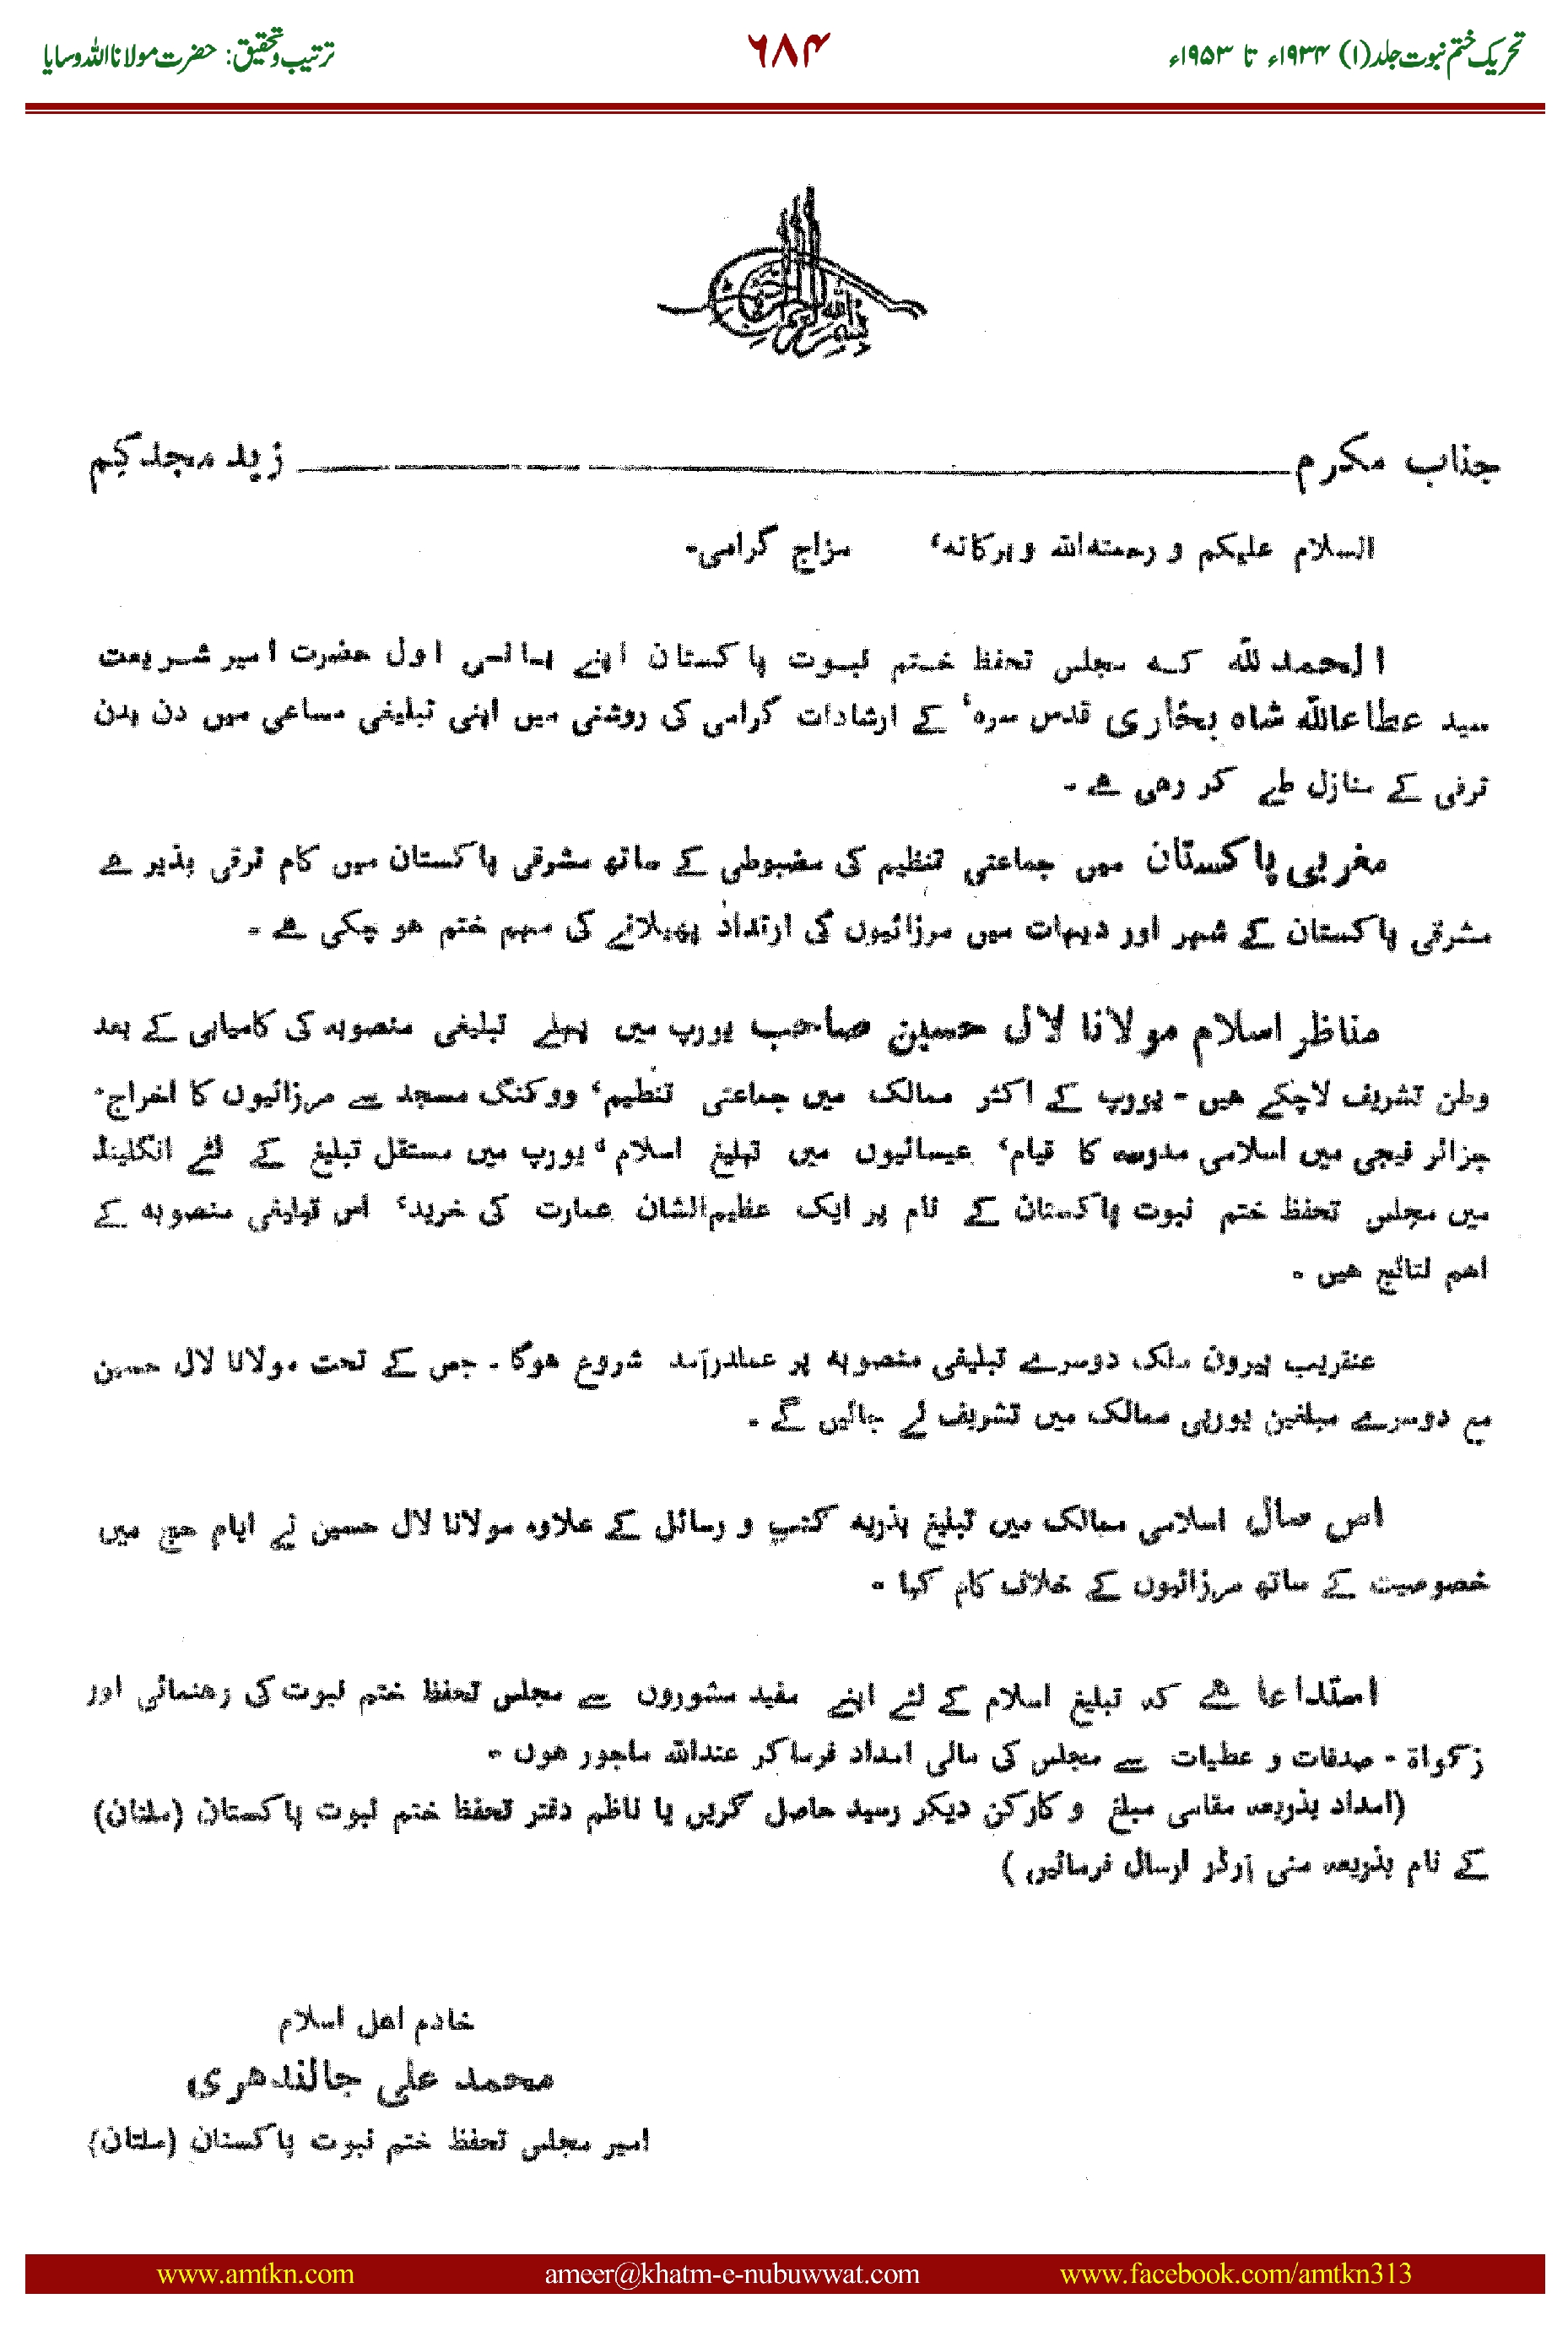 تحریک ختم نبوت جلد(۱) ۱۹۳۴ء تا ۱۹۵۳ء
۶۸۴
ترتیب و تحقیق: حضرت مولانا اللہ وسایا
بسم اللہ الرحمن الرحیم
جناب مکرم ــــــــــــــــــــــ زید مجدکم
السلام علیکم و رحمتہ اللہ و برکاتہ‘ مزاج گرامی-
الحمدللہ کہ مجلس تحفظ ختم نبوت پاکستان اپنے بانی اول حضرت امیر شریعت
سید عطاءاللہ شاہ بخاری قدس سرہ‘ کے ارشادات گرامی کی روشنی میں اپنی تبلیغی مساعی میں دن بدن
ترقی کے منازل طے کر رھی ھے -
مغربی پاکستان میں جماعتی تنظیم کی مضبوطی کے ساتھ مشرقی پاکستان میں کام ترقی پذیر ھے
مشرقی پاکستان کے شہر اور دیہات میں مرزائیوں کی ارتداد پھیلانے کی مہم ختم ھو چکی ھے -
مناظر اسلام مولانا لال حسین صاحب یورپ میں پہلے تبلیغی منصوبہ کی کامیابی کے بعد
وطن تشریف لاچکے ھیں - یورپ کے اکثر ممالک میں جماعتی تنظیم‘ ووکنگ مسجد سے مرزائیوں کا اخراج‘
جزائر فیجی میں اسلامی مدرسہ کا قیام‘ عیسائیوں میں تبلیغ اسلام‘ یورپ میں مستقل تبلیغ کے لئے انگلینڈ
میں مجلس تحفظ ختم نبوت پاکستان کے نام پر ایک عظیم الشان عمارت کی خرید‘ اس تبلیغی منصوبہ کے
اھم نتائج ھیں -
عنقریب بیرون ملک دوسرے تبلیغی منصوبہ پر عملدرآمد شروع ھوگا - جس کے تحت مولانا لال حسین
مع دوسرے مبلغین یورپی ممالک میں تشریف لے جائیں گے -
اس سال اسلامی ممالک میں تبلیغ بذریہ کتب و رسائل کے علاوہ مولانا لال حسین نے ایام حج میں
خصوصیت کے ساتھ مرزائیوں کے خلاف کام کیا -
استداعا ھے کہ تبلیغ اسلام کے لئے اپنے مفید مشوروں سے مجلس تحفظ ختم نبوت کی رھنمائی اور
زکواۃ - صدقات و عطیات سے مجلس کی مالی امداد فرماکر عنداللہ ماجور ھوں -
(امداد بذریعہ مقامی مبلغ و کارکن دیکر رسید حاصل کریں یا ناظم دفتر تحفظ ختم نبوت پاکستان (ملتان)
کے نام بذریعہ منی آرڈر ارسال فرمائیں )
خادم اھل اسلام
محمد علی جالندھری
امیر مجلس تحفظ ختم نبوت پاکستان (ملتان)
www.amtkn.com ameer@khatm-e-nubuwwat.com www.facebook.com/amtkn313